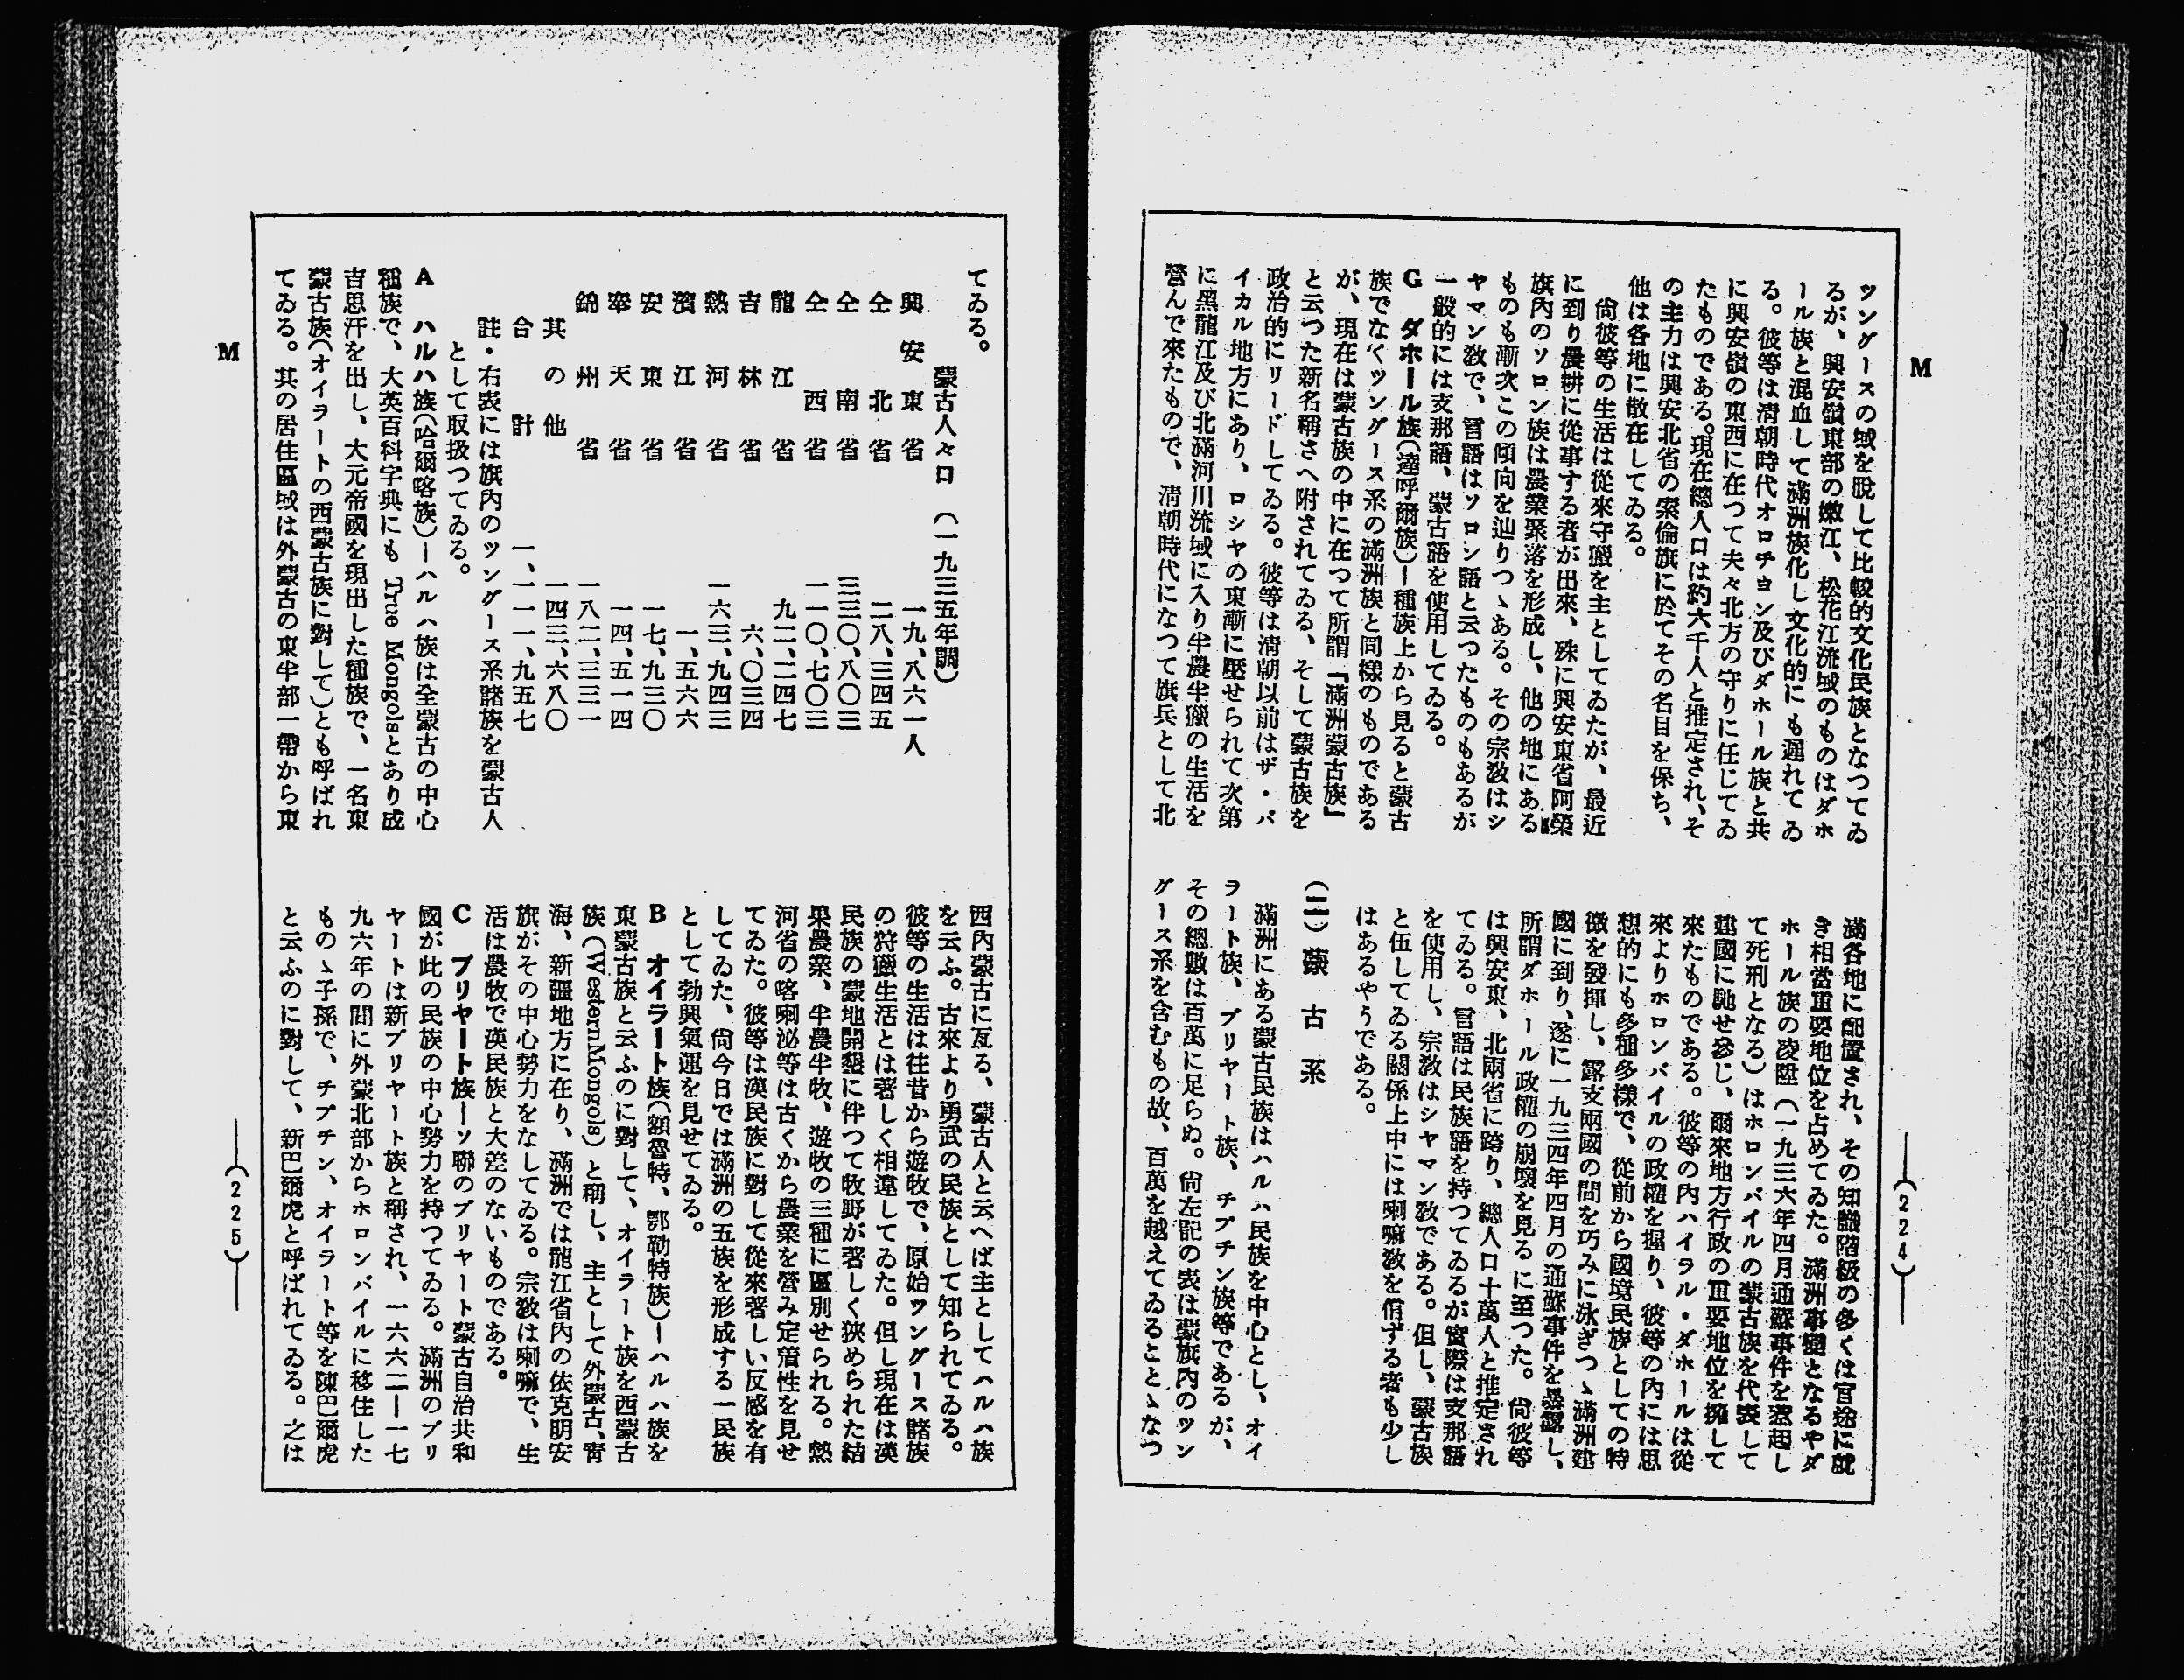 M
ツングースの域を脱して比較的文化民族となつてゐ
るが、興安嶺東部の嫩江、松花江流域のものはダホ
ール族と混血して滿洲族化し文化的にも遲れてゐ
る。彼等は淸朝時代オロチョン及びダホール族と共
に興安嶺の東西に在つて夫々北方の守りに任じてゐ
たものである。現在總人口は約六千人と推定され、そ
の主力は興安北省の索倫旗に於てその名目を保ち、
他は各地に散在してゐる。
尙彼等の生活は從來守獵を主としてゐたが、最近
に到り農耕に從事する者が出來、殊に興安東省阿榮
旗內のソロン族は農業聚落を形成し、他の地にある
ものも漸次この傾向を辿りつゝある。その宗敎はシ
ヤマン敎で、言語はソロン語と云つたものもあるが
一般的には支那語、蒙古語を使用してゐる。
G ダホール族(達呼爾族)ー種族上から見ると蒙古
族でなくツングース系の滿洲族と同樣のものである
が、現在は蒙古族の中に在つて所謂『滿洲蒙古族』
と云つた新名稱さへ附されてゐる、そして蒙古族を
政治的にリードしてゐる。彼等は淸朝以前はザ・バ
イカル地方にあり、ロシヤの東漸に壓せられて次第
に黑龍江及び北滿河川流域に入り半農半獵の生活を
營んで來たもので、淸朝時代になつて旗兵として北
滿各地に配置され、その知識階級の多くは官途に就
き相當重要地位を占めてゐた。滿洲事變となるやダ
ホール族の凌陞(一九三六年四月通蘇事件を惹起し
て死刑となる)はホロンバイルの蒙古族を代表して
建國に馳せ參じ、爾來地方行政の重要地位を擁して
來たものである。彼等の內ハイラル・ダホールは從
來よりホロンバイルの政權を握り、彼等の內には思
想的にも多種多樣で、從前から國境民族としての特
徵を發揮し、露支兩國の間を巧みに泳ぎつゝ滿洲建
國に到り、遂に一九三四年四月の通蘇事件を暴露し、
所謂ダホール政權の崩壞を見るに至つた。尙彼等
は興安東、北兩省に跨り、總人口十萬人と推定され
てゐる。言語は民族語を持つてゐるが實際は支那語
を使用し、宗敎はシヤマン敎である。但し、蒙古族
と伍してゐる關係上中には喇嘛敎を信ずる者も少し
はあるやうである。
(二)蒙古系
滿洲にある蒙古民族はハルハ民族を中心とし、オイ
ラート族、ブリヤート族、チプチン族等であるが、
その總數は百萬に足らぬ。尙左記の表は蒙旗內のツン
グース系を含むもの故、百萬を越えてゐることゝなつ
(224)
てゐる。
蒙古人々口 (一九三五年調)
興安東省 一九、八六一人
仝北省 二八、三四五
仝南省 三三〇、八〇三
仝西省 一一〇、七〇三
龍江省 九二、二四七
吉林省 六、〇三四
熱河省 一六三、九四三
濱江省 一、五六六
安東省 一七、九三〇
奉天省 一四、五一四
錦州省 一八二、三三一
其の他 一四三、六八〇
合計 一、一一一、九五七
註・右表には旗內のツングース系諸族を蒙古人
として取扱つてゐる。
A ハルハ族(哈爾喀族)ーハルハ族は全蒙古の中心
種族で、大英百科字典にも True Mongolsとあり成
吉思汗を出し、大元帝國を現出した種族で、一名東
蒙古族(オイラートの西蒙古族に對して)とも呼ばれ
てゐる。其の居住區域は外蒙古の東半部一帶から東
西內蒙古に亙る、蒙古人と云へば主としてハルハ族
を云ふ。古來より勇武の民族として知られてゐる。
彼等の生活は往昔から遊牧で、原始ツングース諸族
の狩獵生活とは著しく相違してゐた。但し現在は漢
民族の蒙地開墾に伴つて牧野が著しく狹められた結
果農業、半農半牧、遊牧の三種に區別せられる。熱
河省の喀喇沁等は古くから農業を營み定着性を見せ
てゐた。彼等は漢民族に對して從來著しい反感を有
してゐた、尙今日では滿洲の五族を形成する一民族
として勃興氣運を見せてゐる。
B オイラート族(額魯特、鄂勒特族)ーハルハ族を
東蒙古族と云ふのに對して、オイラート族を西蒙古
族(WesternMongols)と稱し、主として外蒙古、靑
海、新疆地方に在り、滿洲では龍江省內の依克明安
旗がその中心勢力をなしてゐる。宗敎は喇嘛で、生
活は農牧で漢民族と大差のないものである。
C ブリヤート族ーソ聯のブリヤート蒙古自治共和
國が此の民族の中心勢力を持つてゐる。滿洲のブリ
ヤートは新ブリヤート族と稱され、一六六二ー一七
九六年の間に外蒙北部からホロンバイルに移住した
ものゝ子孫で、チプチン、オイラート等を陳巴爾虎
と云ふのに對して、新巴爾虎と呼ばれてゐる。之は
M
(225)